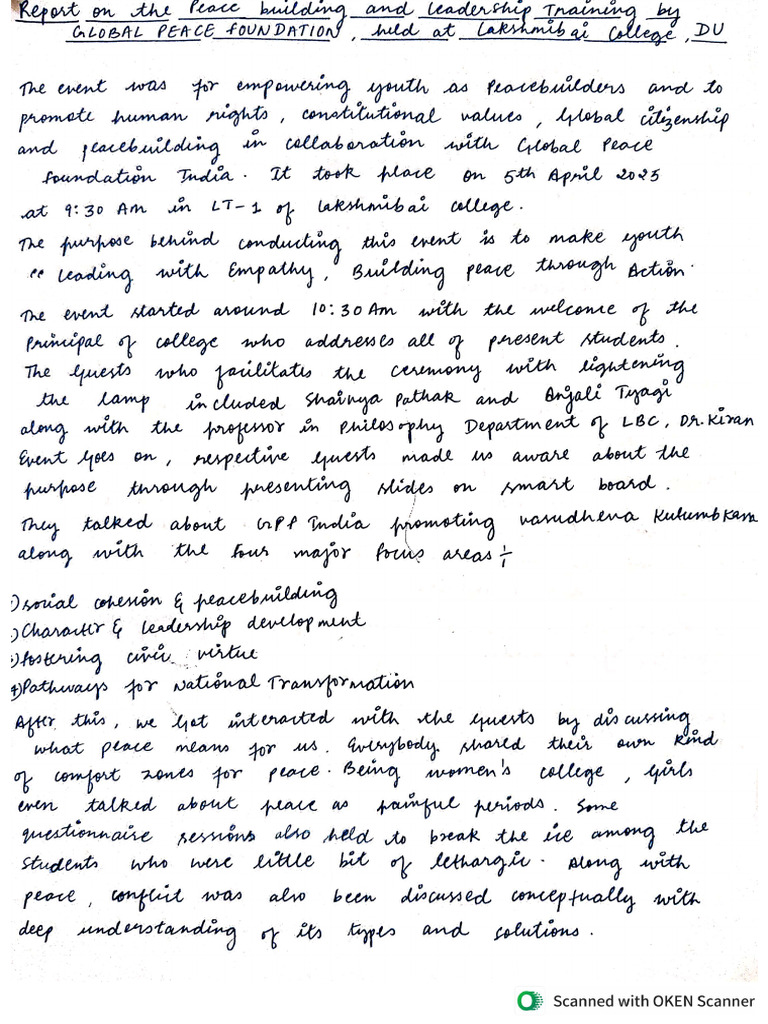 Report on the Peace building and leadership Training by
GLOBAL PEACE FOUNDATION, held at Lakshmibai College, DU
The event was for empowering youth as Peacebuilders and to
promote human rights, constitutional values, Global citizenship
and peacebuilding in collaboration with Global Peace
foundation India. It took place on 5th April 2025
at 9:30 Am in LT-1 of Lakshmibai college.
The purpose behind conducting this event is to make youth
"Leading with Empathy, Building peace through Action.
The event started around 10:30 Am with the welcome of the
Principal of college who addresses all of present students.
The Guests who facilitates the ceremony with lightening
the lamp included Shainya Pathak and Anjali Tyagi
along with the professor in Philosophy Department of LBC, Dr. Kiran
Event goes on, respective guests made us aware about the
purpose through presenting slides on smart board.
They talked about GPF India promoting vasudheva Kutumbkam
along with the four major focus areas :-
1) Social cohesion & peacebuilding
2) Character & leadership development
3) fostering civic virtue
4) Pathways for National Transformation
After this, we got interacted with the guests by discussing
what peace means for us. Everybody shared their own kind
of comfort zones for peace. Being women's college, Girls
even talked about peace as painful periods. Some
questionnaire sessions also held to break the ice among the
students who were little bit of lethargic. Along with
peace, conflict was also been discussed conceptually with
deep understanding of its types and solutions.
Scanned with OKEN Scanner